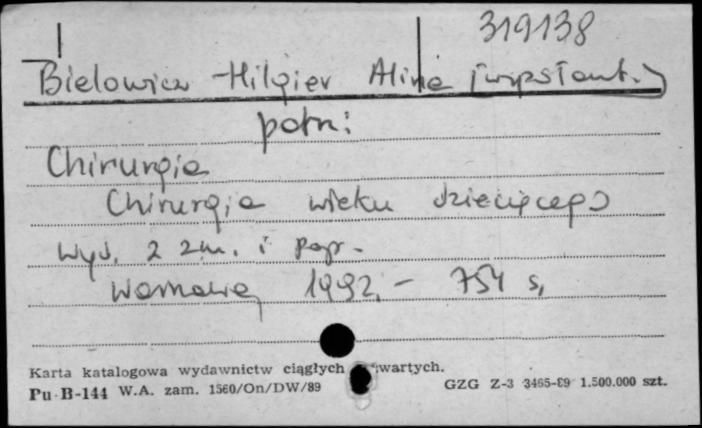 319138
Bielowicz-Hilgier Alina [współaut.]
patrz:
Chirurgia
Chirurgia wieku dziecięcego
Wyd. 2 zm. i popr.
Warszawa, 1992. - 754 s.
Karta katalogowa wydawnictw ciągłych wartych.
Pu-B-144 W.A. zam. 1560/On/DW/89 GZG Z-3 3465-89 1.500.000 szt.